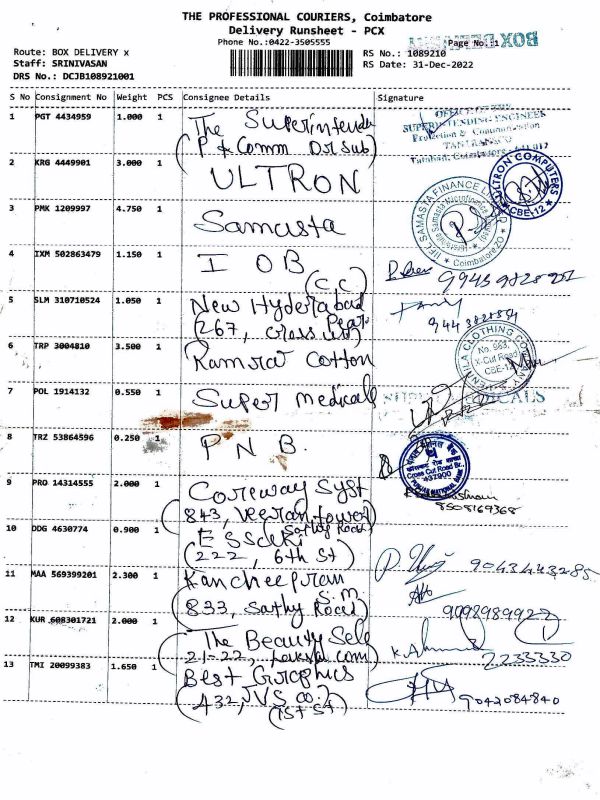 THE PROFESSIONAL COURIERS, Coimbatore
Delivery Runsheet - PCX
Phone No.:0422-3505555
Page No:1
BOX DELIVERY
Route: BOX DELIVERY x
RS No.: 1089210
Staff: SRINIVASAN
RS Date: 31-Dec-2022
DRS No.: DCJB108921001
S No Consignment No Weight PCS Consignee Details Signature
1 PGT 4434959 1.000 1 The Superintende
(P & Comm Dr Sub)
OFFICE OF THE
SUPERINTENDING ENGINEER
Protection & Communication
TANTRANSCO
Tatabad, Coimbatore
2 KRG 4449901 3.000 1 ULTRON
ULTRON COMPUTERS
CBE-12
3 PMK 1209997 4.750 1 Samasta
IIFL SAMASTA FINANCE
Samasta Microfinance
Coimbatore
4 IXM 502863479 1.150 1 I OB
(C.C)
5 SLM 310710524 1.050 1 New Hyderabad
Pear
(267, Cross
6 TRP 3004810 3.500 1 Ramraj Cotton
VENNILA CLOTHING COMPANY
No. 983,
X-Cut Road
CBE-12
7 POL 1914132 0.550 1 Super medical
SUPER MEDICALS
8 TRZ 53864596 0.250 1 P N B.
Cross Cut Road Br.,
PUNJAB NATIONAL BANK
9 PRO 14314555 2.000 1 Coreway Syst
(843, Veeran tower
Sathy Road)
8508169368
10 DDG 4630774 0.900 1 ESSaki
(222, 6th St)
9043443285
11 MAA 569399201 2.300 1 Kancheepram
S.M.
(833, Sathy Road)
12 KUR 608301721 2.000 1 The Beauty Sele
(21-22, com)
2233330
13 TMI 20099383 1.650 1 Best Graphics
(432, JVS co.)
(1st St)
9042084840